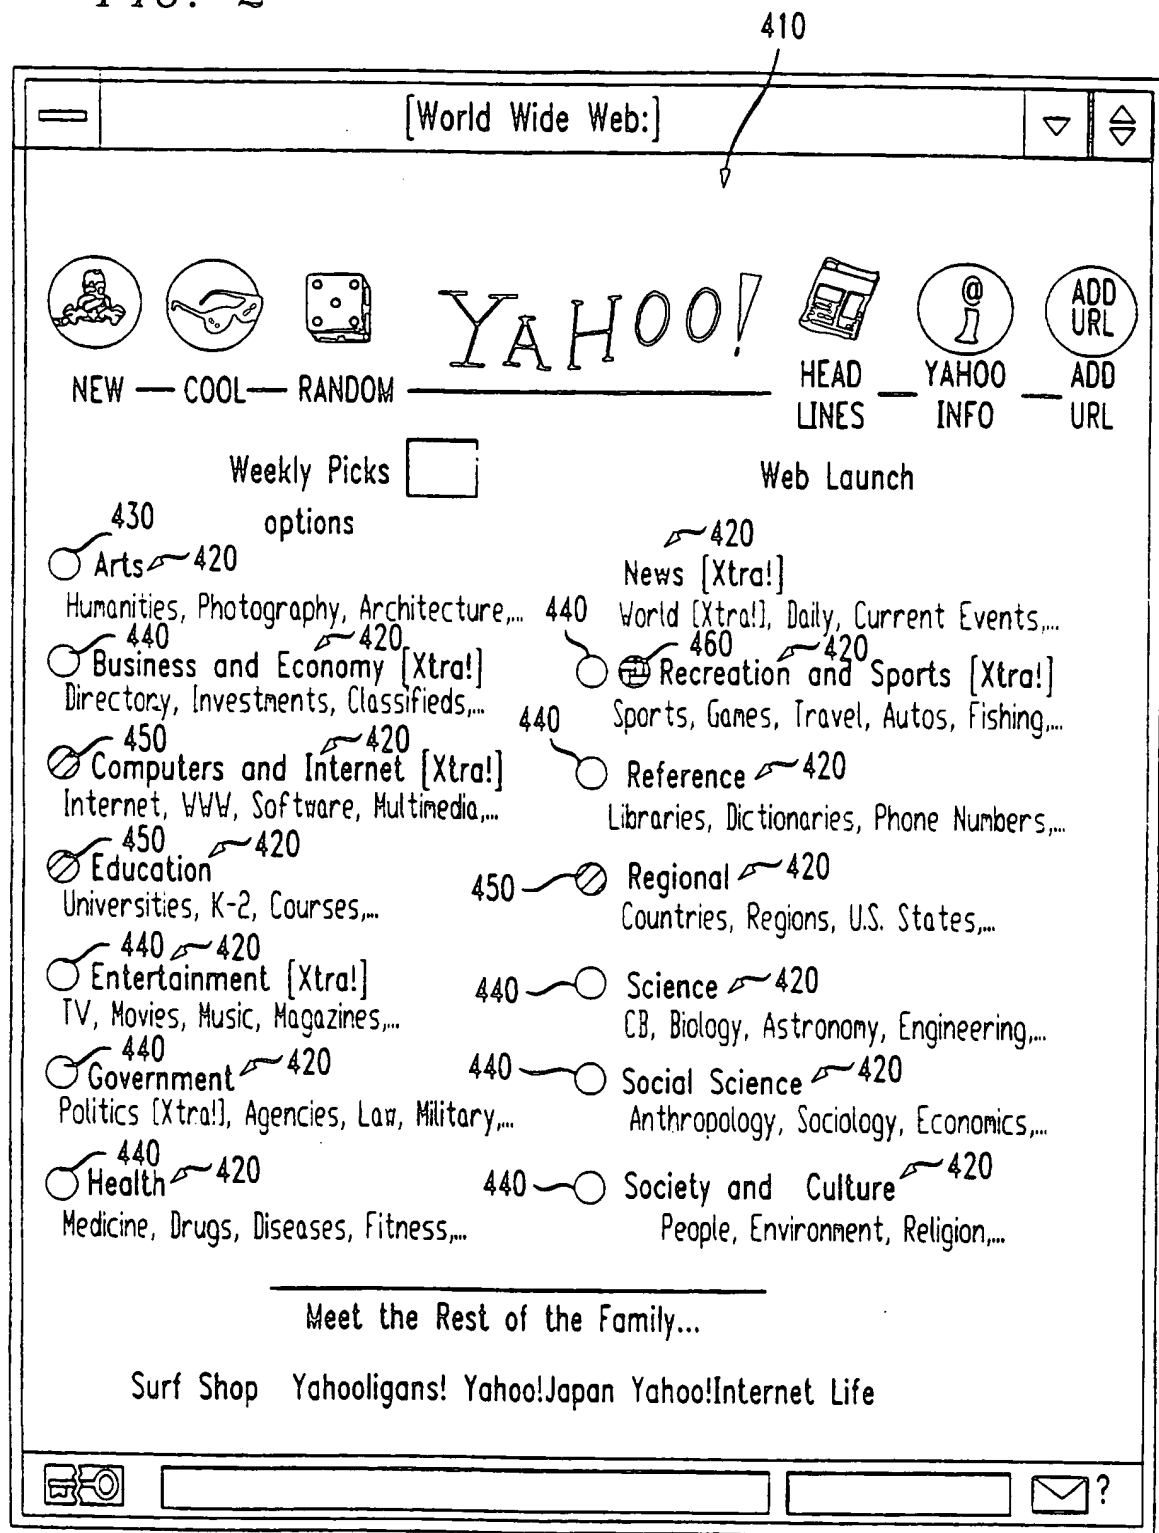 FIG. 2
410
[World Wide Web:]
YAHOO!
@
i
ADD
URL
NEW — COOL — RANDOM
HEAD
LINES
YAHOO
INFO
ADD
URL
Weekly Picks
Web Launch
options
430
Arts 420
Humanities, Photography, Architecture,...
440 420
Business and Economy [Xtra!]
Directory, Investments, Classifieds,...
450 420
Computers and Internet [Xtra!]
Internet, WWW, Software, Multimedia,...
450 420
Education
Universities, K-2, Courses,...
440 420
Entertainment [Xtra!]
TV, Movies, Music, Magazines,...
440
Government 420
Politics [Xtra!], Agencies, Law, Military,...
440
Health 420
Medicine, Drugs, Diseases, Fitness,...
420
News [Xtra!]
World [Xtra!], Daily, Current Events,...
440 460 420
Recreation and Sports [Xtra!]
Sports, Games, Travel, Autos, Fishing,...
440
Reference 420
Libraries, Dictionaries, Phone Numbers,...
450 Regional 420
Countries, Regions, U.S. States,...
440 Science 420
CB, Biology, Astronomy, Engineering,...
440 Social Science 420
Anthropology, Sociology, Economics,...
440 Society and Culture 420
People, Environment, Religion,...
Meet the Rest of the Family...
Surf Shop Yahooligans! Yahoo!Japan Yahoo!Internet Life
?